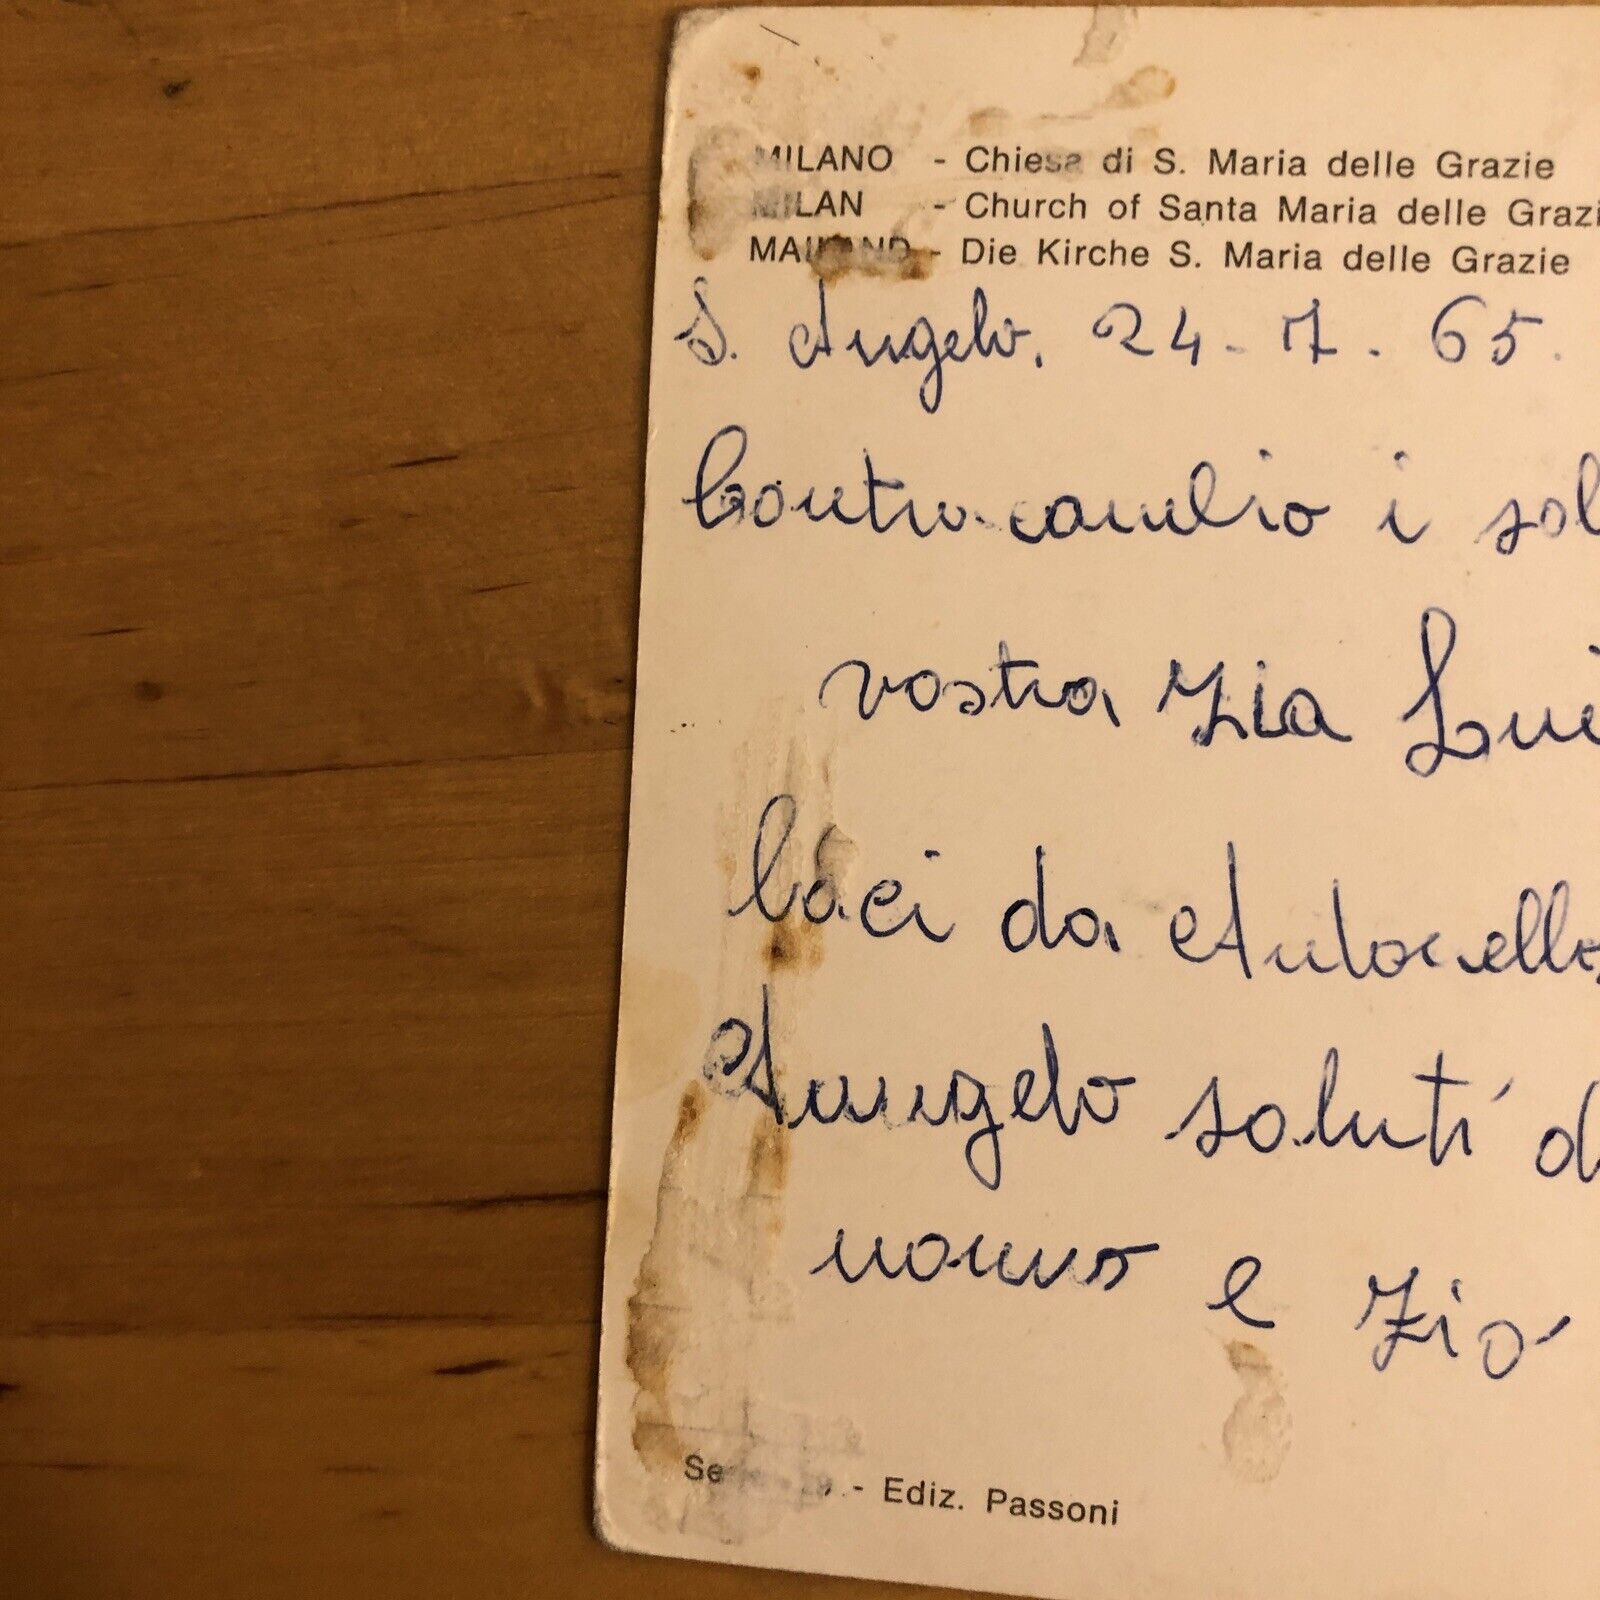 MILANO - Chiesa di S. Maria delle Grazie
MILAN - Church of Santa Maria delle Grazi
MAILAND - Die Kirche S. Maria delle Grazie
S. Angelo, 24 - 7 . 65 .
Contracambio i sal
vostra zia Lui
baci da Antonello
Angelo saluti d
nonno e zio
Serie - Ediz. Passoni